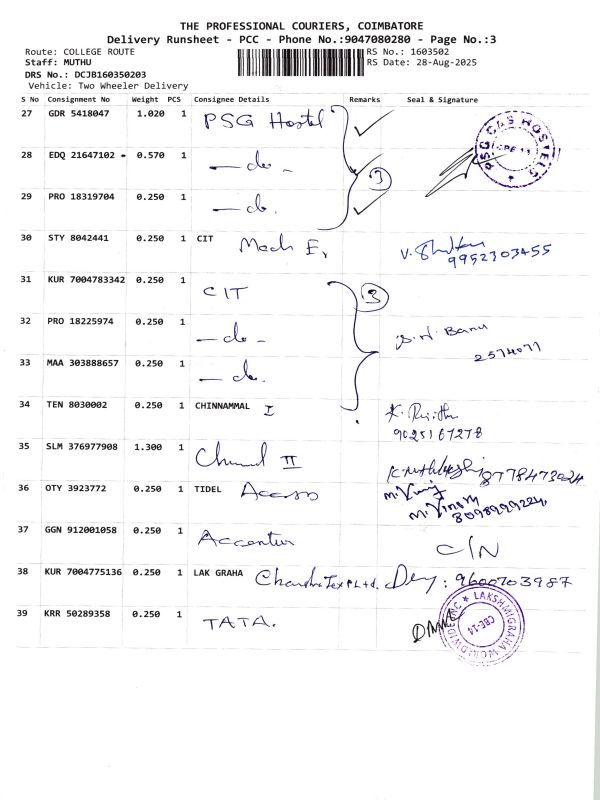 THE PROFESSIONAL COURIERS, COIMBATORE
Delivery Runsheet - PCC - Phone No.:9047080280 - Page No.:3
Route: COLLEGE ROUTE RS No.: 1603502
Staff: MUTHU RS Date: 28-Aug-2025
DRS No.: DCJB160350203
Vehicle: Two Wheeler Delivery
S No Consignment No Weight PCS Consignee Details Remarks Seal & Signature
27 GDR 5418047 1.020 1 PSG Hostel
PSG CAS HOSTELS
28 EDQ 21647102 0.570 1 — do -
3
29 PRO 18319704 0.250 1 — do.
30 STY 8042441 0.250 1 CIT Mech E,
9952303455
31 KUR 7004783342 0.250 1 CIT
3
32 PRO 18225974 0.250 1 — do -
S.N. Banu
2574071
33 MAA 303888657 0.250 1 — do.
34 TEN 8030002 0.250 1 CHINNAMMAL I
9025167278
35 SLM 376977908 1.300 1 II
8778473024
36 OTY 3923772 0.250 1 TIDEL Access
M. Vinoth
37 GGN 912001058 0.250 1 Accentur
C/N
38 KUR 7004775136 0.250 1 LAK GRAHA Chandra Tex P Ltd. : 9600703987
39 KRR 50289358 0.250 1 TATA.
LAKSHMIGRAHA WORLDWIDE INC
CBE-14